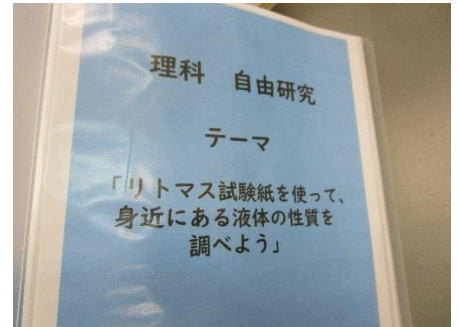 理科　自由研究
テーマ
「リトマス試験紙を使って、
身近にある液体の性質を
調べよう」